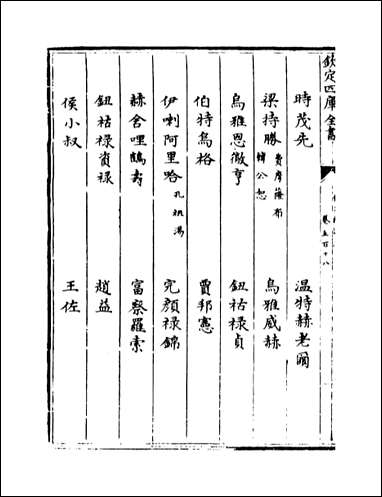 欽定四庫全書
卷五百十八
時茂先
温特赫老圖
梁持勝
費摩薩布
韓公恕
烏雅威赫
烏雅恩徹亨
鈕祜祿貞
伯特烏格
賈邦憲
伊喇阿里喀
孔祖湯
完顏祿錦
赫舍哩鶴壽
富察羅索
鈕祜祿資祿
趙益
侯小叔
王佐